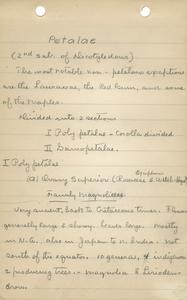 Petalae
(2nd sub. of Dicotyledons)
The most notable non-petalous exceptions
are the Lauraceae, the Red Gum, and some
of the Maples.
Divided into 2 sections
I Polypetalae - Corolla divided
II Gamopetalae.
I Polypetalae
Symptoms
(a) Ovary Superior (Racemose &
Family Magnoliaceae
Very ancient, back to Cretaceous times. Flowers
generally large & showy. Leaves large. Mostly
in N.A. also in Japan to N. India. Not
south of the equator. 10 genera, & indigenous
2 producing trees - magnolia & Lirioden-
dron.